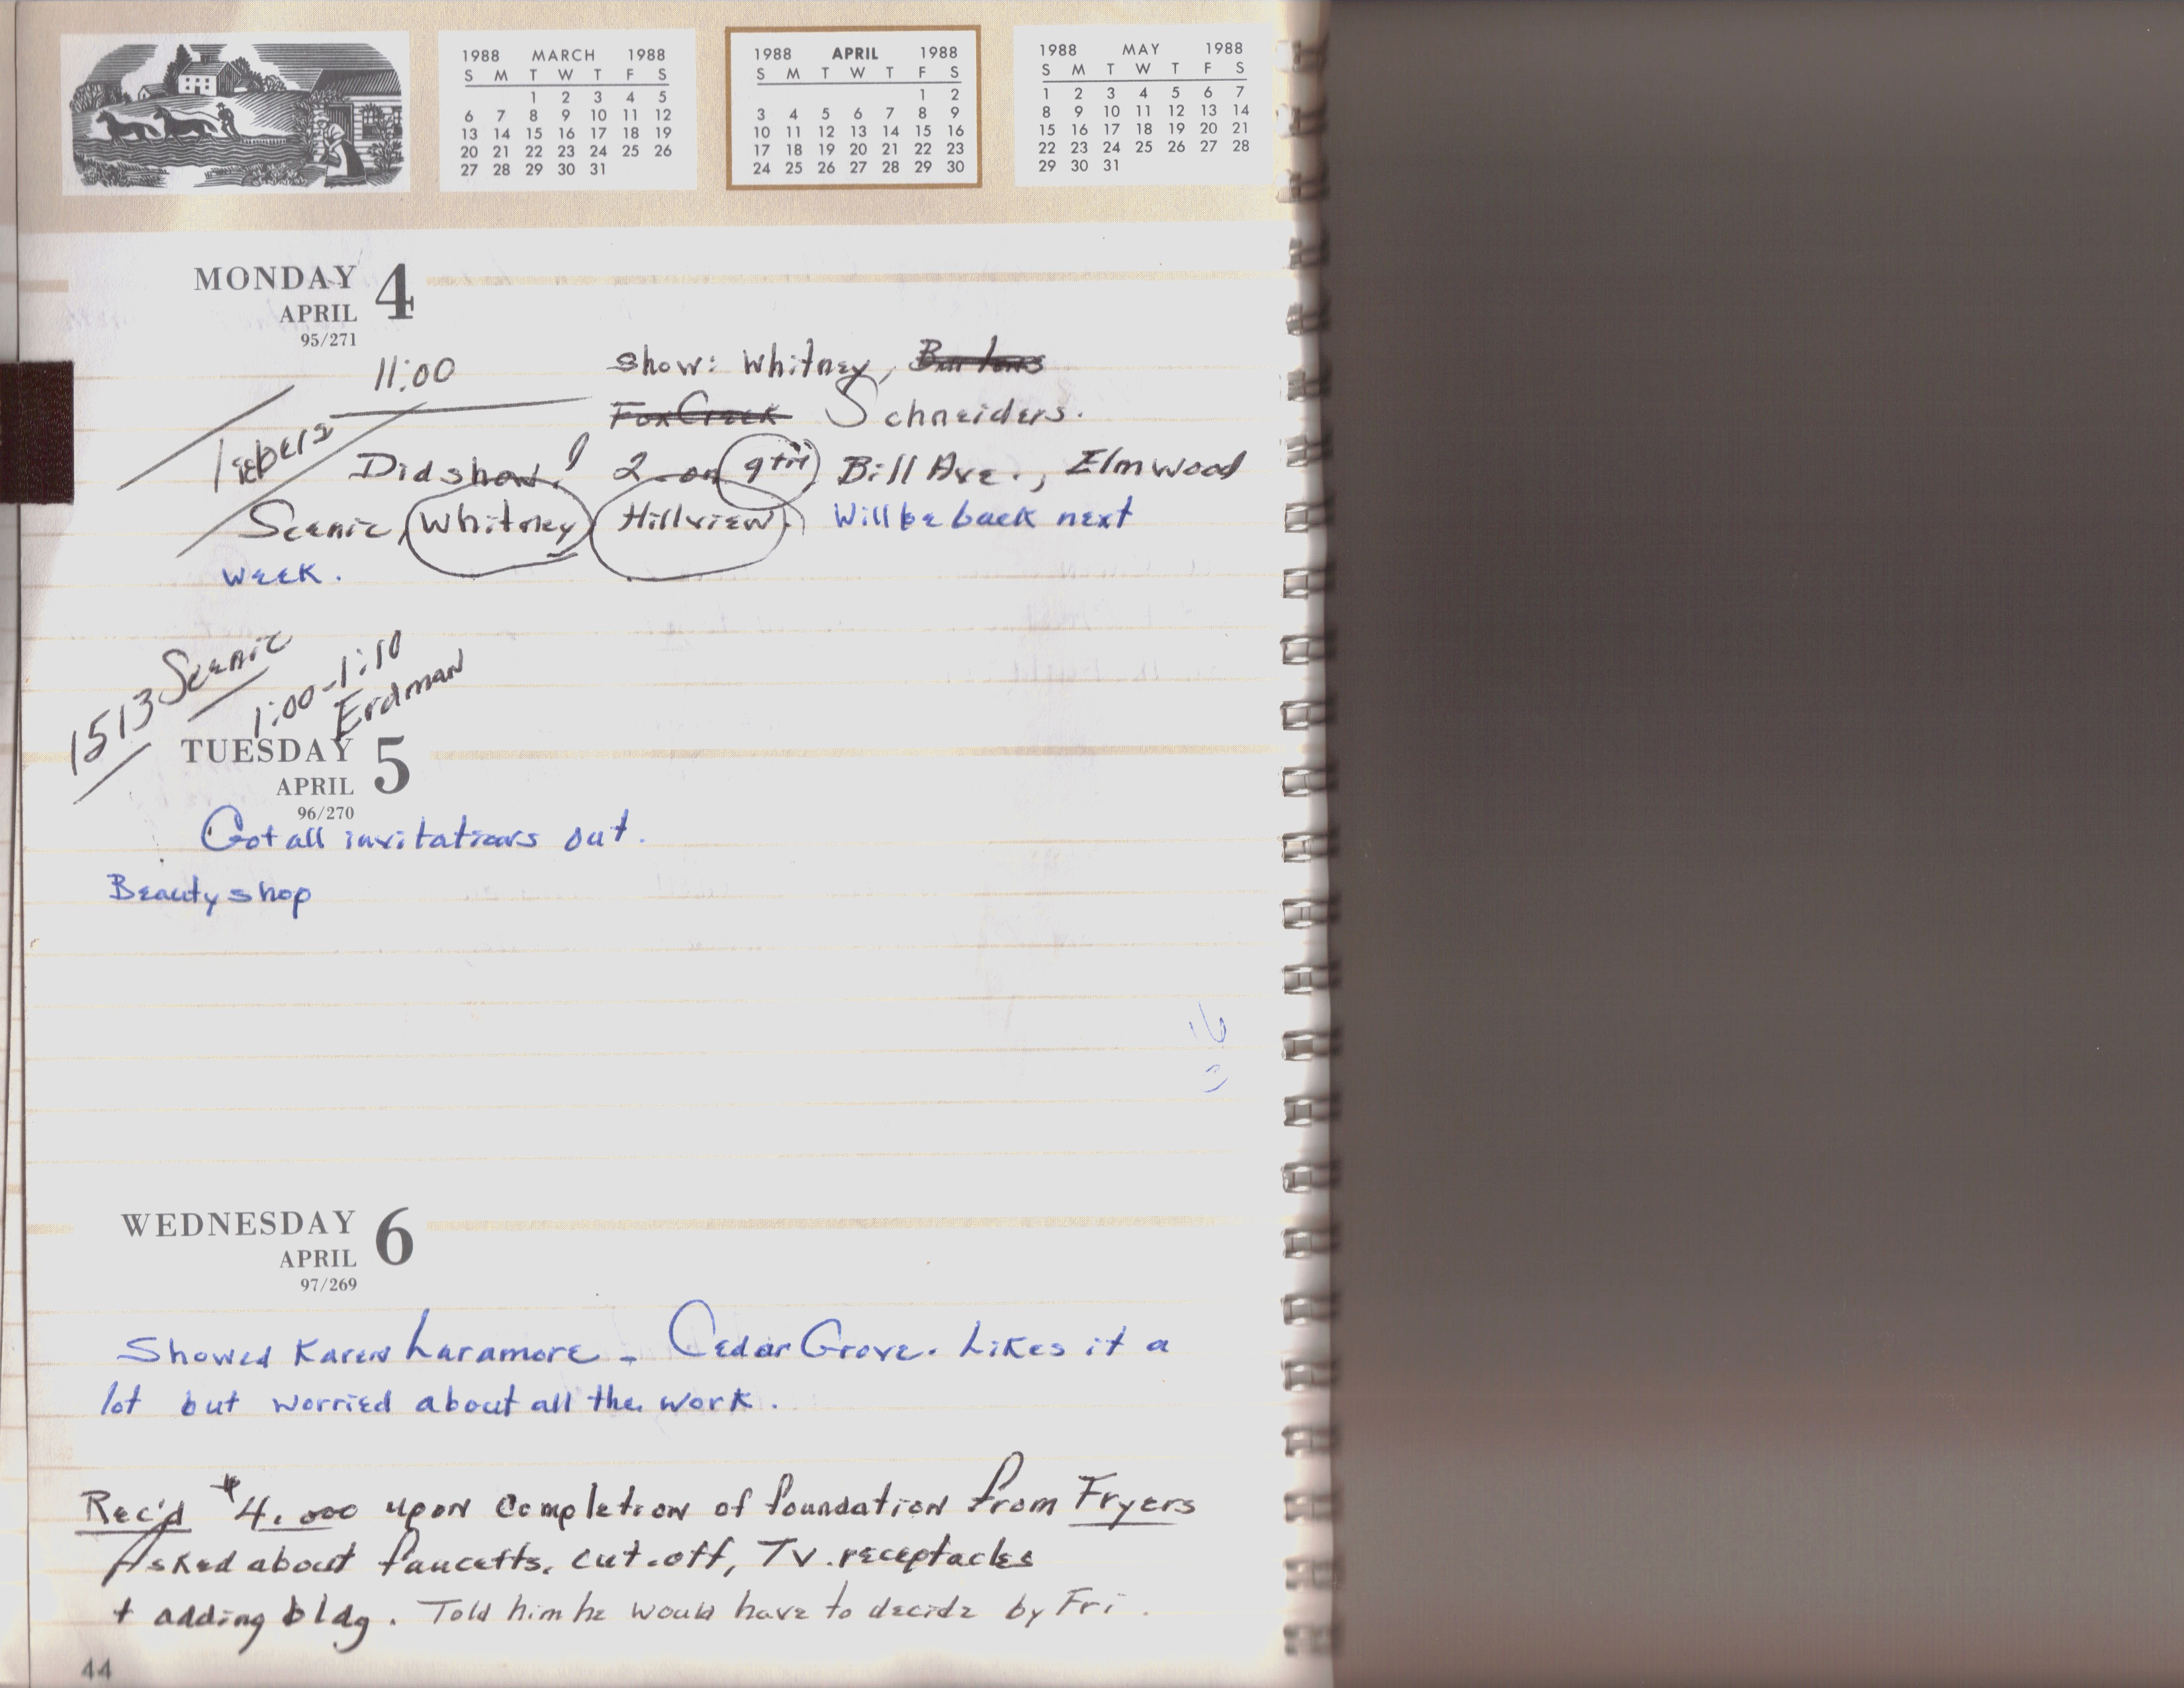 1988 MARCH 1988
S M T W T F S
1 2 3 4 5
6 7 8 9 10 11 12
13 14 15 16 17 18 19
20 21 22 23 24 25 26
27 28 29 30 31
1988 APRIL 1988
S M T W T F S
1 2
3 4 5 6 7 8 9
10 11 12 13 14 15 16
17 18 19 20 21 22 23
24 25 26 27 28 29 30
1988 MAY 1988
S M T W T F S
1 2 3 4 5 6 7
8 9 10 11 12 13 14
15 16 17 18 19 20 21
22 23 24 25 26 27 28
29 30 31
MONDAY 4
APRIL
95/271
11:00 show: Whitney,
Fox Creek Schneiders.
Did show! 2 on 9th, Bill Ave., Elmwood
Scenic, Whitney, Hillview. Will be back next
week.
1513 Scenic
1:00-1:10
Erdman
TUESDAY 5
APRIL
96/270
Got all invitations out.
Beauty shop
WEDNESDAY 6
APRIL
97/269
Showed Karen Laramore - Cedar Grove. Likes it a
lot but worried about all the work.
Rec'd $4,000 upon completion of foundation from Fryers
Asked about faucetts, cut-off, TV. receptacles
+ adding bldg. Told him he would have to decide by Fri.
44